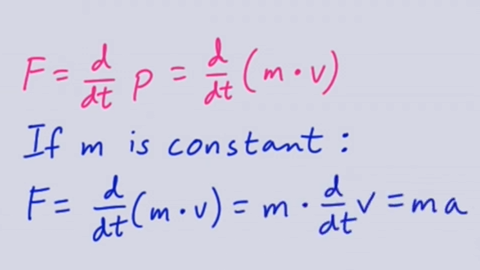 F = d/dt p = d/dt (m · v)
If m is constant :
F = d/dt (m · v) = m · d/dt v = m a